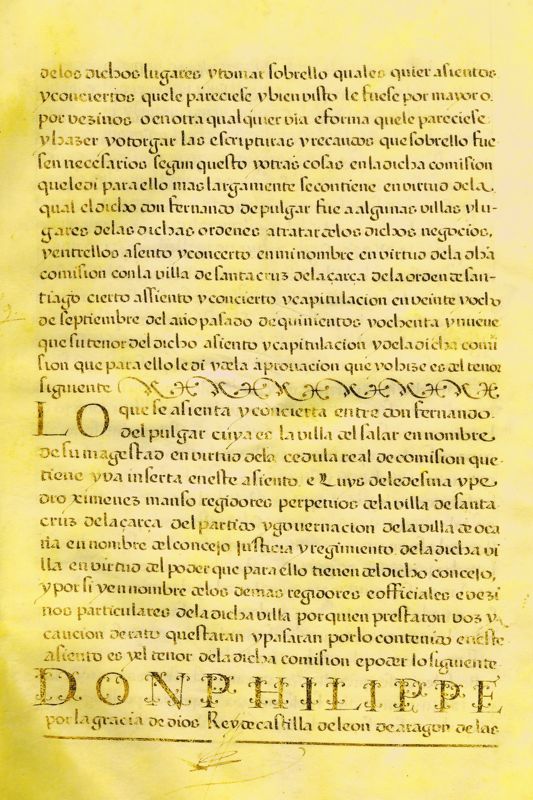 de los dichos lugares y tomar sobrello quales quier asientos
y conciertos que le pareciese y bien visto le fuese por mayor o
por vezinos o en otra qual quier via e forma que le pareciese
y hazer y otorgar las escripturas y recaudos que sobrello fue
sen necesarios segun questo y otras cosas en la dicha comision
que le di para ello mas largamente se contiene en virtud de la
qual el dicho don fernando de pulgar fue a algunas villas y lu-
gares de las dichas ordenes a tratar de los dichos negocios,
y entrellos asento y concerto en mi nombre en virtud de la dha
comision con la villa de santa cruz de la çarça de la orden de san-
tiago cierto assiento y concierto y capitulacion en veinte y ocho
de septiembre del año pasado de quinientos y ochenta y nueve
que su tenor del dicho asiento y capitulacion y de la dicha comi
sion que para ello le di y de la aprouacion que yo hize es del tenor
siguiente
LO que se asienta y concierta entre don fernando.
del pulgar cuya es la villa del salar en nombre
de su magestad en virtud de la cedula real de comision que
tiene y va inserta en este asiento. e Luys de ledesma y pe
dro ximenez manso regidores perpetuos de la villa de santa
cruz de la çarça del partido y governacion de la villa de oca
ña en nombre del concejo justicia y regimiento de la dicha vi
lla en virtud del poder que para ello tienen del dicho concejo,
y por si y en nombre de los demas regidores e officiales e vezi
nos particulares de la dicha villa por quien prestaron voz y
caucion de rato questaran y pasaran por lo contenido en este
asiento es y el tenor de la dicha comision e poder lo siguiente
DON PHILIPPE
por la gracia de dios Rey de castilla de leon de aragon de las